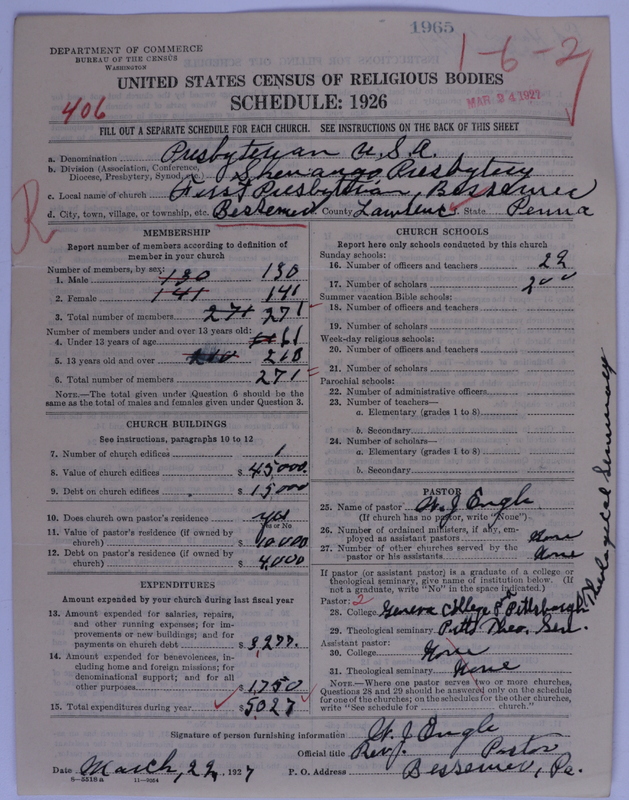 1965
DEPARTMENT OF COMMERCE
BUREAU OF THE CENSUS
WASHINGTON
1-6-2
UNITED STATES CENSUS OF RELIGIOUS BODIES
406
SCHEDULE: 1926
MAR 24 1927
FILL OUT A SEPARATE SCHEDULE FOR EACH CHURCH. SEE INSTRUCTIONS ON THE BACK OF THIS SHEET
a. Denomination Presbyterian U.S.A.
b. Division (Association, Conference, Diocese, Presbytery, Synod, etc.) Shenango Presbytery
c. Local name of church First Presbyterian, Bessemer
d. City, town, village, or township, etc. Bessemer County Lawrence State Penna
R
MEMBERSHIP
Report number of members according to definition of
member in your church
Number of members, by sex:
1. Male 130 130
2. Female 141 141
3. Total number of members 271 271
Number of members under and over 13 years old:
4. Under 13 years of age 61
5. 13 years old and over 210 210
6. Total number of members 271
NOTE.—The total given under Question 6 should be
the same as the total of males and females given under Question 3.
CHURCH BUILDINGS
See instructions, paragraphs 10 to 12
7. Number of church edifices 1
8. Value of church edifices $ 45,000.
9. Debt on church edifices $ 15,000
10. Does church own pastor's residence yes
Yes or No
11. Value of pastor's residence (if owned by
church) $ 10,000
12. Debt on pastor's residence (if owned by
church) $ 4,000
EXPENDITURES
Amount expended by your church during last fiscal year
13. Amount expended for salaries, repairs,
and other running expenses; for im-
provements or new buildings; and for
payments on church debt $ 3,277.
14. Amount expended for benevolences, in-
cluding home and foreign missions; for
denominational support; and for all
other purposes $ 1,750
15. Total expenditures during year $ 5027
CHURCH SCHOOLS
Report here only schools conducted by this church
Sunday schools:
16. Number of officers and teachers 22
17. Number of scholars 200
Summer vacation Bible schools:
18. Number of officers and teachers
19. Number of scholars
Week-day religious schools:
20. Number of officers and teachers
21. Number of scholars
Parochial schools:
22. Number of administrative officers
23. Number of teachers—
a. Elementary (grades 1 to 8)
b. Secondary
24. Number of scholars—
a. Elementary (grades 1 to 8)
b. Secondary
PASTOR
25. Name of pastor W. J. Engle
(If church has no pastor, write "None")
26. Number of ordained ministers, if any, em-
ployed as assistant pastors None
27. Number of other churches served by the
pastor or his assistants None
If pastor (or assistant pastor) is a graduate of a college or
theological seminary, give name of institution below. (If
not a graduate, write "No" in the space indicated.)
Pastor: 2
28. College Geneva College & Pittsburgh
Theological Seminary
29. Theological seminary Pitts Theo. Sem.
Assistant pastor:
30. College None
31. Theological seminary None
NOTE.—Where one pastor serves two or more churches,
Questions 28 and 29 should be answered only on the schedule
for one of the churches; on the schedules for the other churches,
write "See schedule for church."
Signature of person furnishing information W. J. Engle
Official title Rev. Pastor
Date March, 22, 1927 P. O. Address Bessemer, Pa.
8-5518a 11-9064